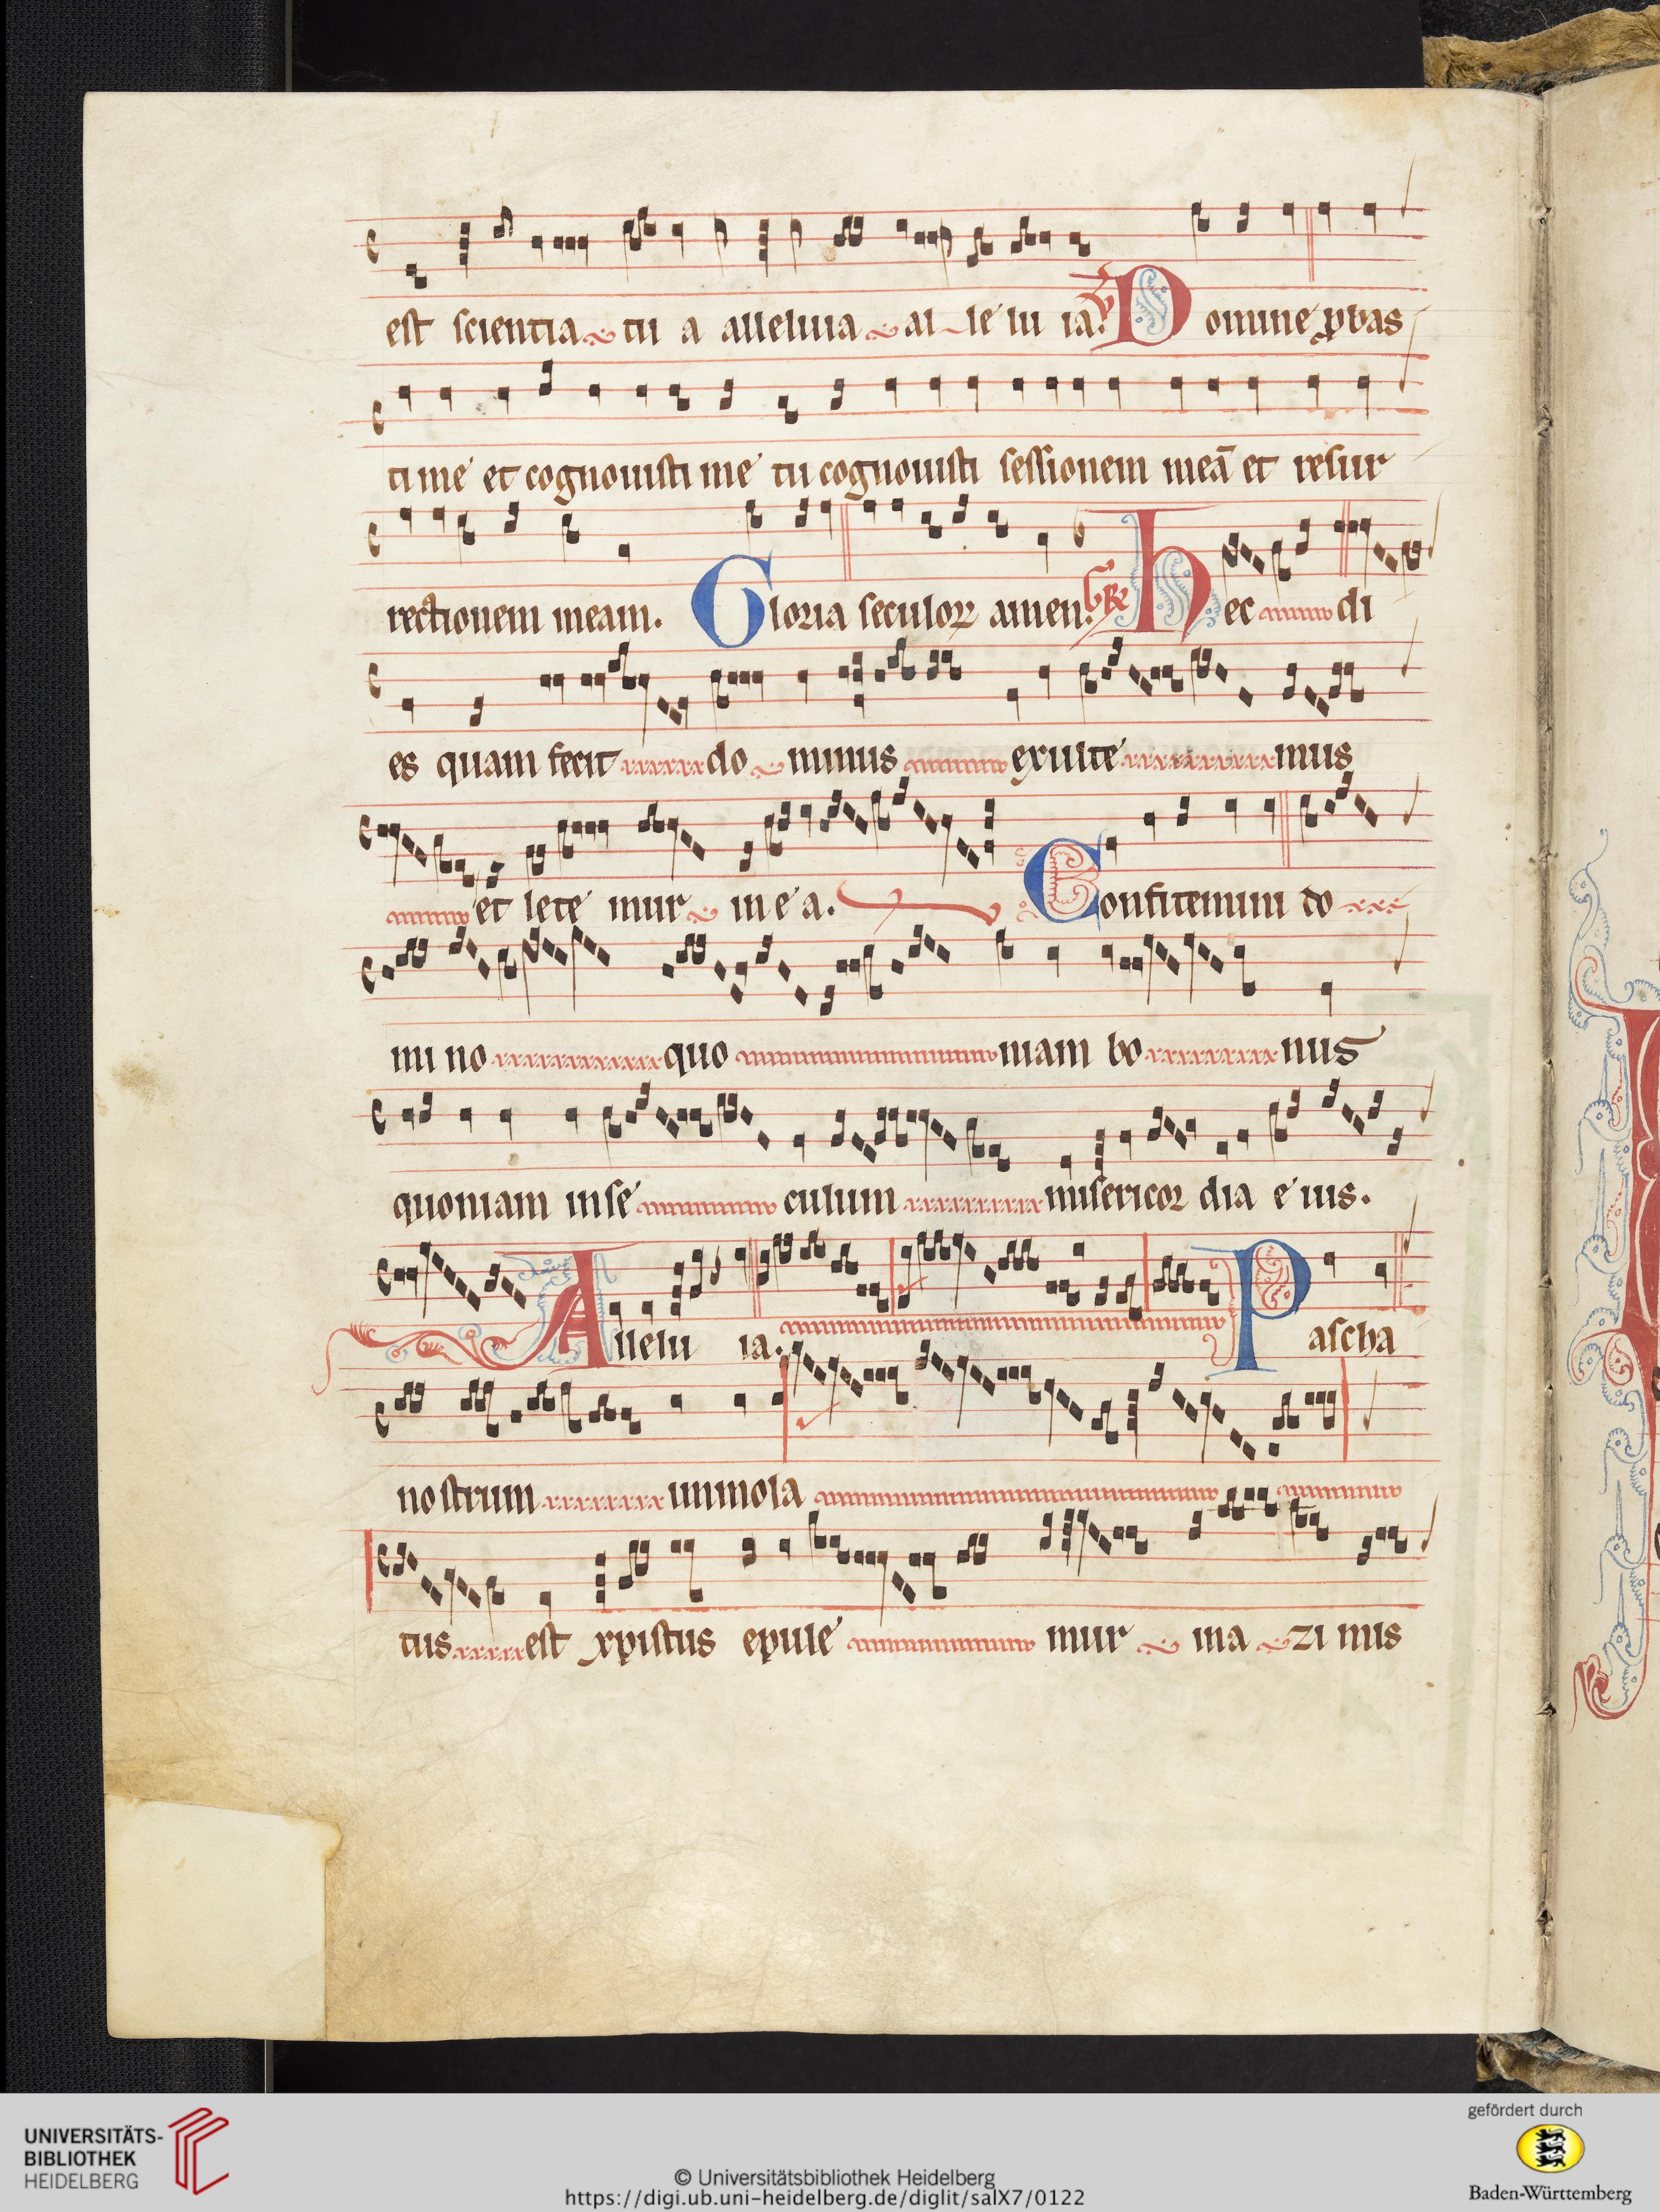 est scientia tu a alleluia al le lu ia. V Domine ꝓbas
ti me et cognouisti me tu cognouisti sessionem meā et resur
rectionem meam. Gloria seculoꝝ amen. Gʀ̄ Hec di
es quam fecit do minus exulte mus
et lete mur in e a. Confitemini do
mi no quo niam bo nus
quoniam in se culum misericoꝛ dia e ius.
Allelu ia. Pascha
nostrum immola
tus est xpistus epule mur in a zi mis
UNIVERSITÄTS-
BIBLIOTHEK
HEIDELBERG
© Universitätsbibliothek Heidelberg
https://digi.ub.uni-heidelberg.de/diglit/salX7/0122
gefördert durch
Baden-Württemberg